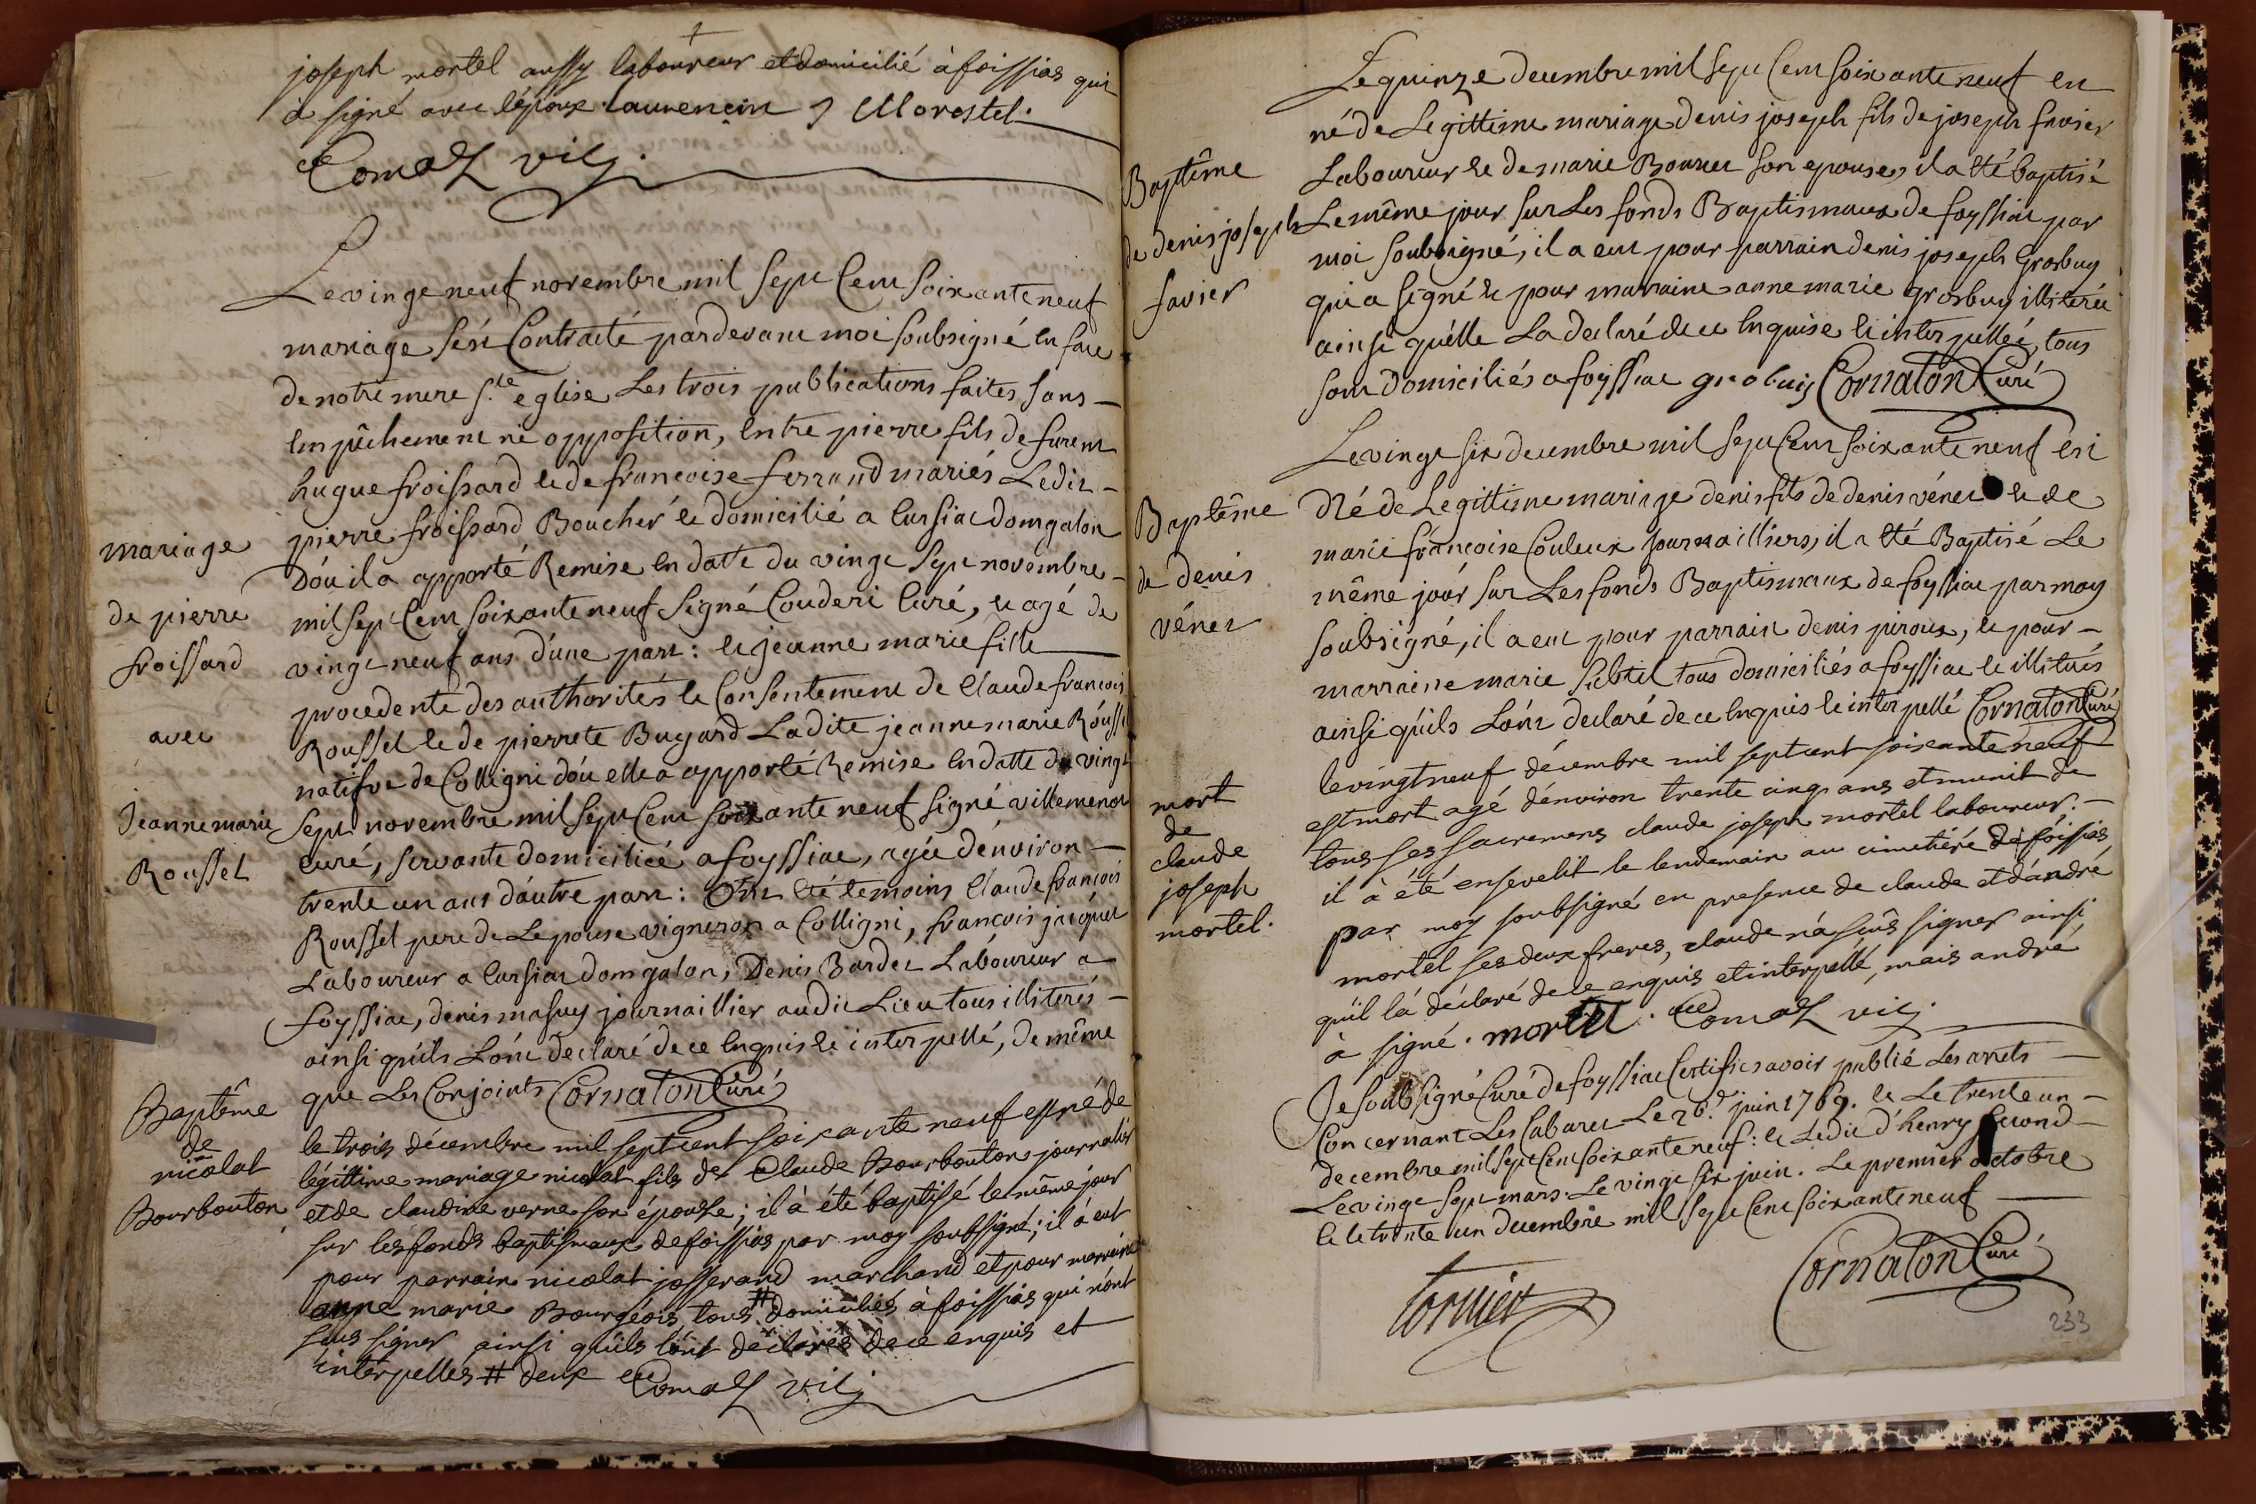 joseph mortel aussy laboureur et domicilié à foissias qui
à signé avec lépoux Laurencin J Morestel.
Comaz vic.
Le vingt neuf novembre mil sept Cent soixante neuf
mariage sést Contracté pardevant moi soubsigné En face
de notre mere s.te eglise Les trois publications faites sans
Empêchement ni opposition, Entre pierre fils de furent
hugue froissard & de francoise ferrand mariés Ledit
pierre froissard Boucher & domicilié a Cursiat domgalon
Dóu il a apporté Remise En datte du vingt sept novembre
mil sept Cent soixante neuf Signé Couderi Curé, & agé de
vingt neuf ans dúne part : & jeanne marie fille
procedente des authorités & Consentement de Claude francois
Roussel & de pierrete Bugard Ladite jeanne marie Roussel
natifve de Colligni dóu elle a apporté Remise En datte du vingt
sept novembre mil sept Cent soixante neuf signé villemenot
curé, servante domiciliée a foyssiat, agée dénviron
trente un ans dáutre part : Ont Eté temoins Claude francois
Roussel pere de Lepouse vigneron a Colligni, francois jacquet
Laboureur a Cursiat domgalon, Denis Bardet Laboureur a
foyssiat, denis masuy journaillier audit Lieu tous illiterés
ainsi quíls Lónt declaré de ce Enquis & interpellé, de même
que Les Conjoints Cornaton Curé
mariage
de pierre
froissard
avec
Jeanne marie
Roussel
Baptême
de
nicolat
Bourbouton
le trois décembre mil septcent soixante neuf est né de
légittime mariage nicolat fils de Claude Bourbouton journalier
et de claudine verne son épouse ; il à été baptisé le même jour
sur les fonds baptismaux de foissias par moy soubsigné ; il à eut
pour parrain nicolat josserand marchand et pour marraine
anne marie Bourgeois tous # domiciliés à foissias qui nónt
sus signer ainsi quíls lónt déclarés de ce enquis et
interpelles # deux Comaz vic
Le quinze decembre mil sept Cent soixante neuf est
né de Legittime mariage denis joseph fils de joseph favier
Laboureur & de marie Bonnet son epouse, il a Eté baptisé
Le même jour sur Les fonds Baptismaux de foyssiat par
moi soubsigné, il a eut pour parrain denis joseph Grosbuy
qui a signé & pour marraine anne marie grosbuy illiterée
ainsi quélle La declaré de ce Enquise & interpellée, tous
sont domiciliés a foyssiat grobuis Cornaton Curé
Baptême
de denis joseph
favier
Le vingt six decembre mil sept Cent soixante neuf est
Né de Legittime mariage denis fils de denis vénet & de
marie francoise Couleux journailliers, il a Eté Baptisé Le
même jóur sur Les fonds Baptismaux de foyssiat par moy
soubsigné, il a eut pour parrain denis piroux, & pour
marraine marie subtil tous domiciliés a foyssiat & illiterés
ainsi quíls Lónt declaré de ce Enquis & interpellé Cornaton Curé
Baptême
de denis
vénet
le vingt neuf décembre mil septcent soixante neuf
est mort agé dénviron trente cinq ans et munit de
tous ses sacremens claude joseph mortel laboureur.
il à été ensevelit le lendemain au cimetiére de foissias
par moy soubsigné en presence de claude et dándré
mortel ses deux freres, claude ná sus signer ainsi
quíl lá déclaré de ce enquis et interpellé, mais andré
à signé. mortel. Comaz vic.
mort
de
claude
joseph
mortel.
Je soubsigné Curé de foyssiat Certifie avoir publié Les arrets
Concernant Les Cabaret Le 26.e juin 1769. & Le trente un
decembre mil sept Cent soixante neuf : & Ledit d'henry second
Le vingt sept mars. Le vingt six juin. Le premier octobre
& le trente un decembre mil sept Cent soixante neuf
Cornaton Curé
233